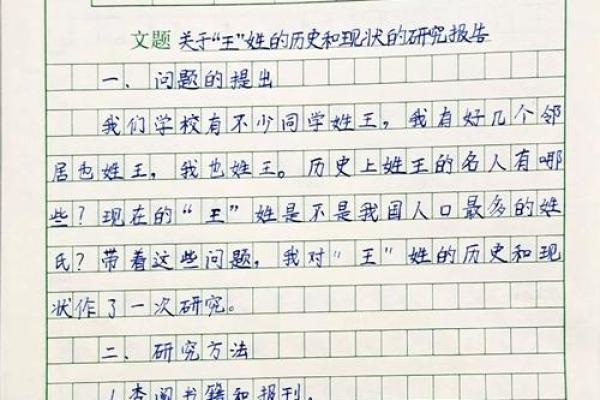 文题 关于“王”姓的历史和现状的研究报告
一、问题的提出
我们学校有不少同学姓王，我有好几个邻
居也姓王，我也姓王。历史上姓王的名人有哪
些？现在的“王”姓是不是我国人口最多的姓
氏？带着这些问题，我对“王”姓的历史和现
状作了一次研究。
二、研究方法
1.查阅书籍和报刊。